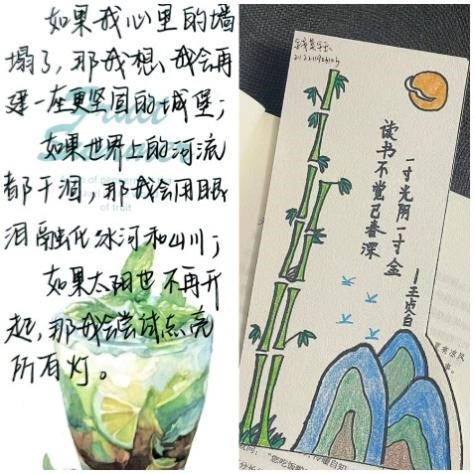 如果我心里的墙
塌了，那我想，我会再
建一座更坚固的城堡；
如果世界上的河流
都干涸，那我会用眼
泪融化冰河和山川；
如果太阳也不再升
起，那我会尝试点亮
所有灯。
Fruit
of fruit
读书不觉已春深
一寸光阴一寸金
—王贞白